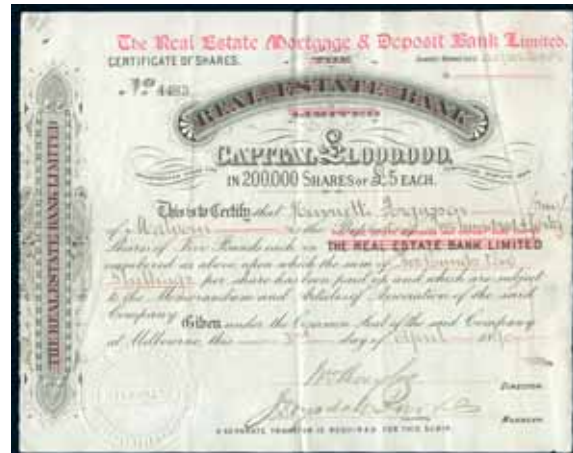 The Real Estate Mortgage & Deposit Bank Limited.
CERTIFICATE OF SHARES.
THE
No 4483
REAL ESTATE BANK
LIMITED
CAPITAL £1,000,000,
IN 200,000 SHARES OF £5 EACH.
This is to Certify that Kenneth Ferguson
of Malvern is the Proprietor of
Shares of Five Pounds each in THE REAL ESTATE BANK LIMITED
numbered as above, upon which the sum of Two Pounds
Shillings per share has been paid up and which are subject
to the Memorandum and Articles of Association of the said
Company
Given under the Common Seal of the said Company
at Melbourne this day of April
DIRECTOR
MANAGER
A SEPARATE TRANSFER IS REQUIRED FOR THIS SCRIP.
THE REAL ESTATE BANK LIMITED